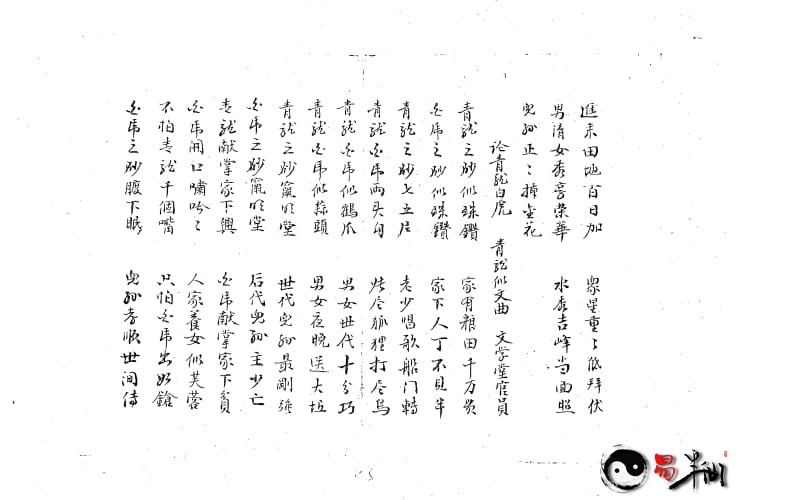 進来田地百日加 衆星重々低拜伏
男清女秀享荣華 水秀吉峰当面照
兒孙正々揷金花
论青龍白虎 青龍似文曲 文学堂官員
青龍之砂似珠鑽 家有粮田千万
白虎之砂似珠鑽 家下人丁不見半
青龍之砂七五片 老少唱歌船门轉
青龍白虎両头勾 尽狐狸打尽鸟
青龍白虎似鶴爪 男女世代十分巧
青龍白虎似蒜頭 男女夜晚送大坵
青龍之砂窟明堂 世代兒孙最剛強
白虎之砂窟明堂 后代兒孙主少亡
青龍献掌家下興 白虎献掌家下貧
白虎開口嘯吟々 人家養女似芙蓉
不怕青龍千個嘴 只怕白虎出鎗
白虎之砂腹下眠 兒孙孝順世间傳
易半仙